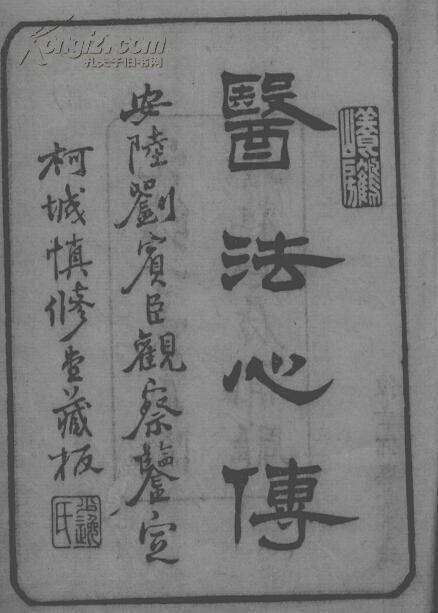 醫法心傳
安陸劉賓臣觀察鑒定
柯城慎修堂藏板
Kongfz.com
孔夫子旧书网